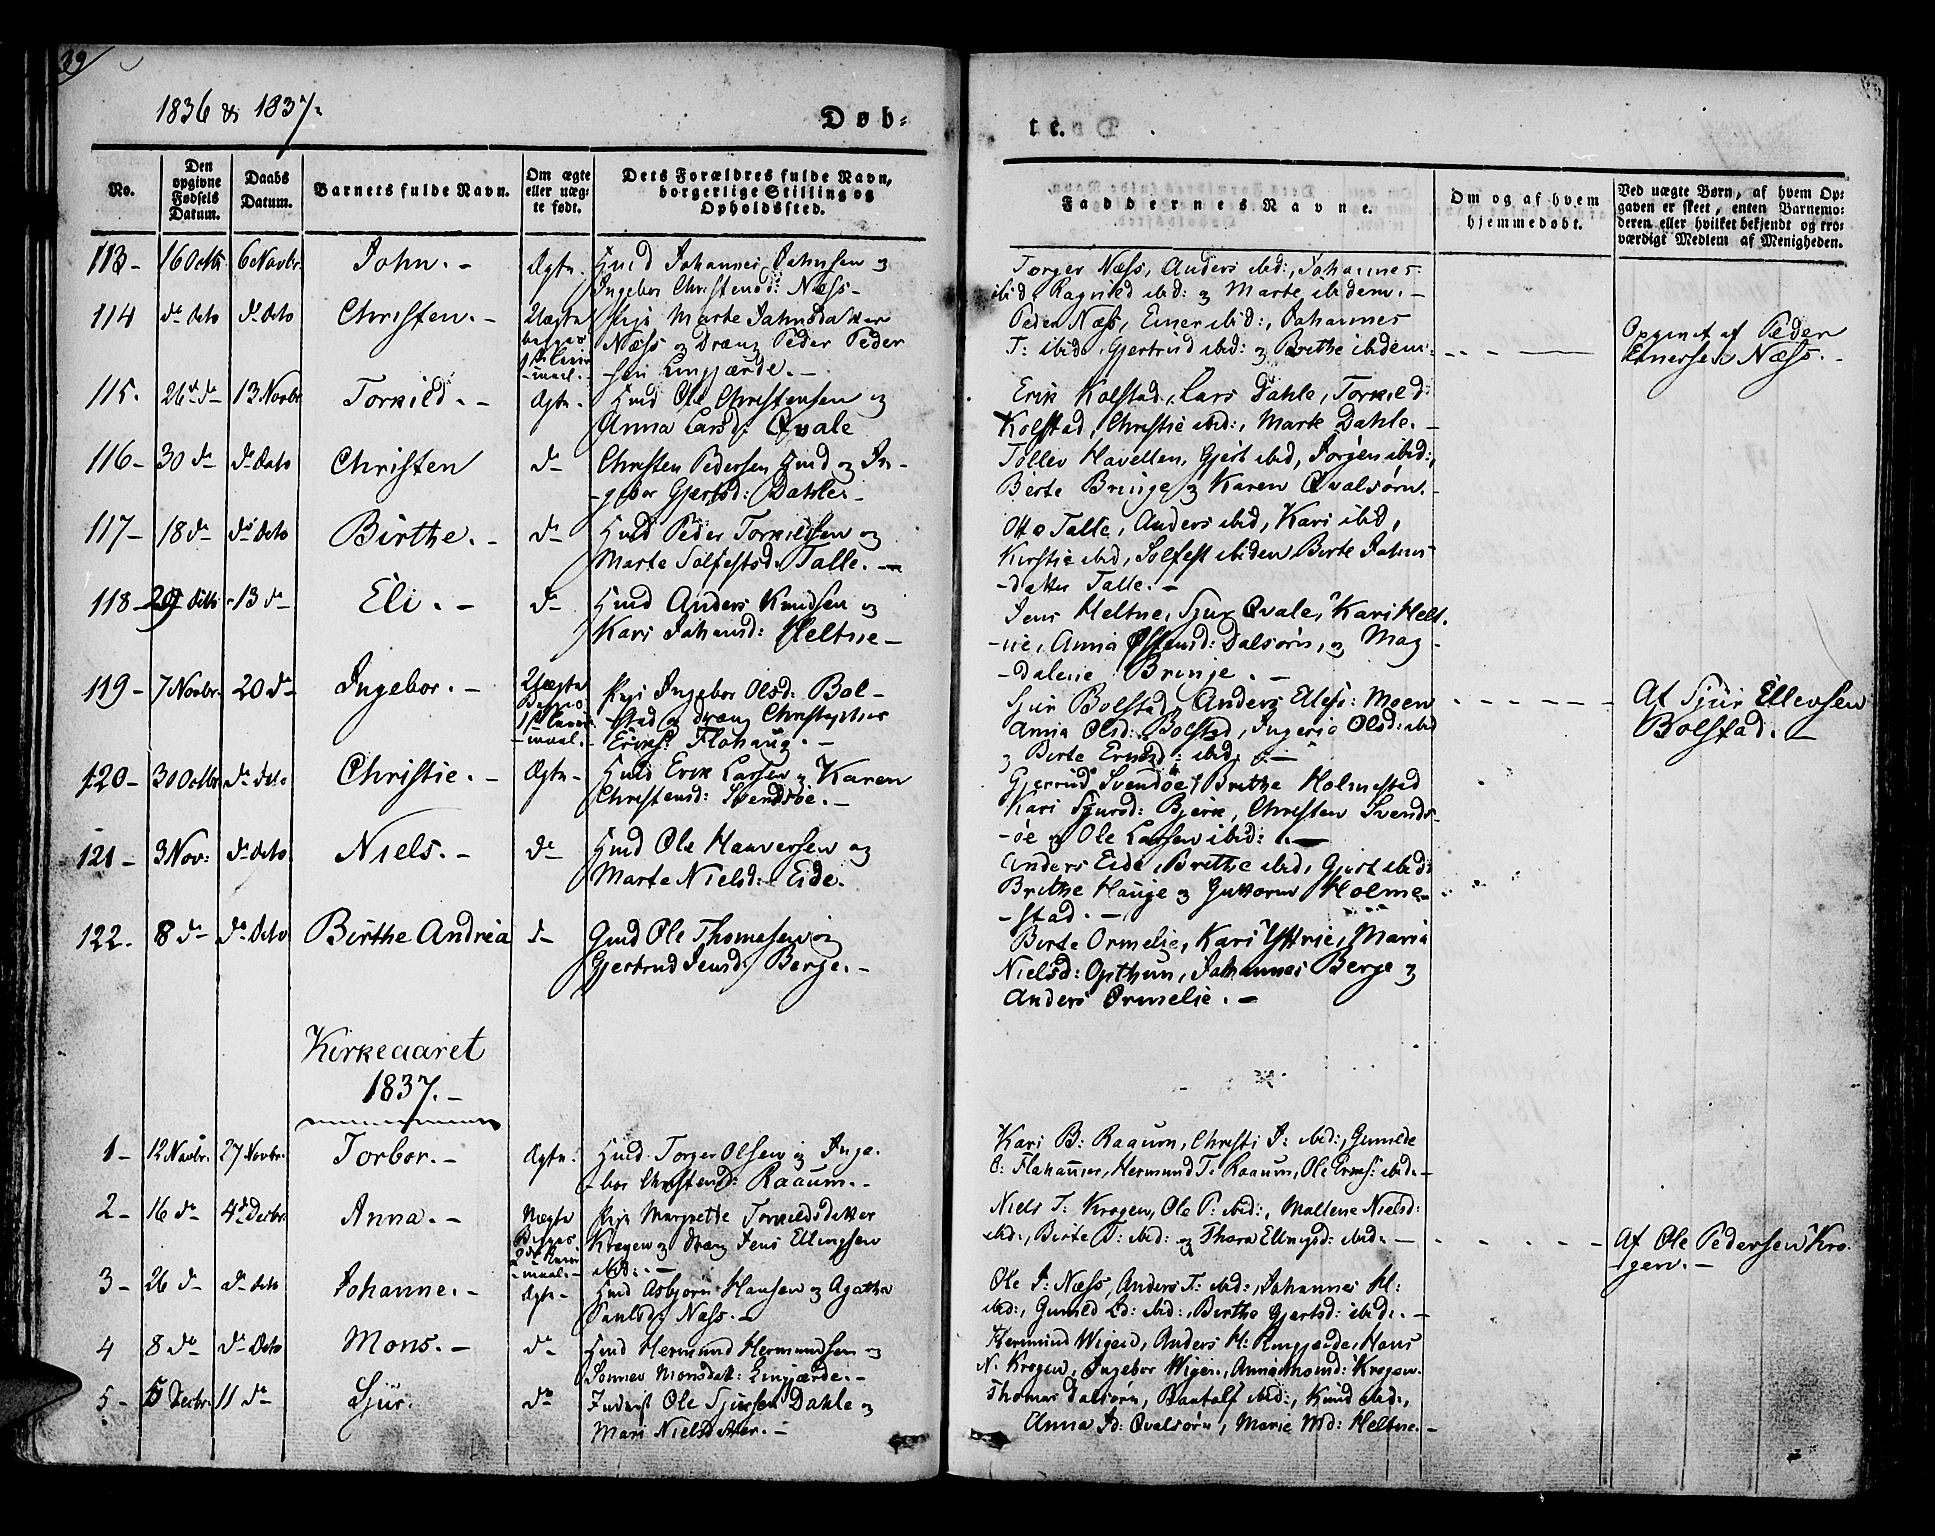 39
1836 & 1837.
Døb-
te.
No.
Den opgivne Fødsels Datum.
Daabs Datum.
Barnets fulde Navn.
Om ægte eller uægte født.
Dets Forældres fulde Navn, borgerlige Stilling og Opholdssted.
Faddernes Navne.
Om og af hvem hjemmedøbt.
Ved uægte Børn, af hvem Opgaven er skeet, enten Barnemoderen eller hvilket bekjendt og troværdigt Medlem af Menigheden.
113- 16 Octb. 6 Novbr. John. - Ægte. Hmd Johannes Johnsen og
Ingebor Christensd: Næss-
Torger Næss, Anders ibid:, Johannes
ibid, Ragnild ibid: og Marte ibidem. -
114 do dito do dito Christen. - Uægte Pige Marte Johnsdatter
Næss og Dræng Peder Peder
sen Lingjærde. -
Peder Næss, Einer ibid:, Johannes
J: ibid, Gjertrud ibid: og Birthe ibidem:
Opgivet af Peder
Einersen Næss. -
115. 26 do 13 Novbr. Torkild. - Ægte. Hmd Ole Christensen og
Anna Larsd: Qvale
Erik Kolstad, Lars Dahle, Torkild:
Kolstad, Christie ibid:, Marte Dahle. -
116- 30 do do dato Christen do Christen Pedersen Hmd og In-
-gebor Gjertsd: Dahle. -
Tollev Havellen, Gjert ibid, Jørgen ibid:,
Birte Bringe og Karen Qvalsørn.
117- 18 do do dito Birthe. - do Hmd Peder Torkildsen og
Marte Solfestsd: Talle. -
Otto Talle, Anders ibid, Kari ibid,
Kirstie ibid, Solfest ibidem Birte Johns-
-datter Talle. -
118 29 Octb -13 do Eli. - do Hmd Anders Knudsen og
Kari Johansd: Heltne -
Jens Heltne, Sjur Qvale, Kari Helt.
-ne, Anna Østensd: Dalsørn, og Mag-
-dalene Bringe. -
119- 7 Novbr. 20 do Ingebor. - Uægte Pige Ingebor Olsd: Bol-
-stad og dræng Christopher
Eriks: Flahaug. -
Sjur Bolstad, Anders Elles: Moen
Anna Olsd: Bolstad, Ingerie Olsd: ibid
og Birte ibid. -
Af Sjur Ellevsen
Bolstad. -
120- 30 Octbr do dito Christie. - Ægte- Hmd Erik Larsen og Karen
Christensd: Svendsøe. -
Gjertrud Svendsøe, Brithe Holmestad
Kari Sjursd: Bjørk, Christen Svends-
-øe og Ole Larsen ibid: -
121- 3 Nov: do dato Niels. - do Hmd Ole Haaversen og
Marte Nielsd: Eide.
Anders Eide, Brithe ibid, Gjert ibid:
Brithe Hauge og Guttorm Holme-
-stad. -
122. 8 do do dito Birthe Andrea do Gmd Ole Thomasen og
Gjertrud Jensd: Berge. -
Birte Ormelie, Kari Yttrie, Maria
Nielsd: Opthun, Johannes Berge og
Anders Ormelie. -
Kirkeaaret
1837. -
1- 12 Novbr. 27 Novbr. Torbor. - Ægte. Hmd Torger Olsen og Inge-
-bor Christensd: Raaum. -
Kari B: Raaum, Christi J: ibid:, Gunilde
O: Flahammer, Hermund T: Raaum, Ole ibid. -
2- 16 do 4 Decbr. Anna. - Uægte Pige Margrette Torkildsdatter
Krogen og Dræng Jens Ellingsen
ibid. -
Niels T: Krogen, Ole P: ibid:, Maltene Nielsd:
ibid:, Birte T: ibid: og Thora Ellingsd: ibid. -
Af Ole Pedersen Kro-
-gen. -
3- 26 do do dito Johanne. - Ægte- Hmd Asbjørn Hansen og Agathe
Paulsd: Næss. -
Ole J: Næss, Anders T: ibid:, Johannes H:
ibid:, Gunild Ld: ibid:, Birthe Gjertsd: ibid. -
4 8 do do dito Mons. - do Hmd Hermund Hermundsen og
Synnev Monsdat: Lingjærde. -
Hermund Wigen, Anders H: Lingjærde, Hans
N. Krogen, Ingebor Wigen, Anna Krogen.
5- 5 Decbr. 11 do Sjur. do Inderst Ole Sjursen Dahle og
Mari Nielsdatter. -
Thomas Dalsørn, Baatolf ibid:, Knud ibid:,
Anna Jd: Qvalsørn, Marie Md: Heltne. -